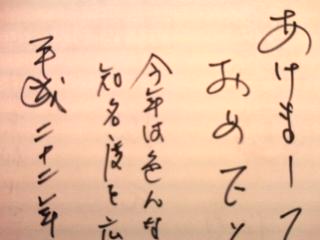 あけまして
おめでと
今年は色んな
知名度を広
平成二十二年